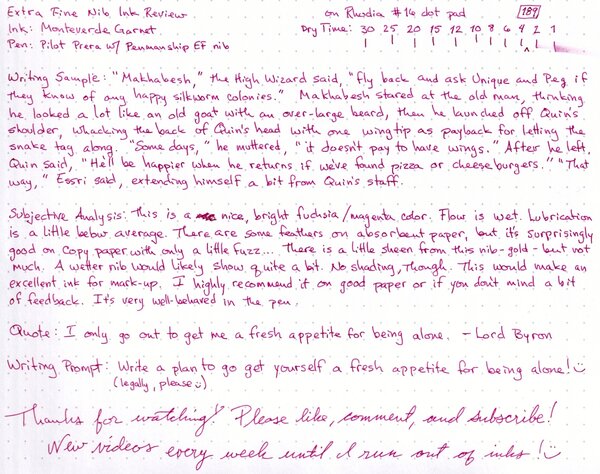 Extra Fine Nib Ink Review on Rhodia #16 dot pad 189
Ink: Monteverde Garnet Dry Time: 30 25 20 15 12 10 8 6 4 2 1
Pen: Pilot Prera w/ Penmanship EF nib
Writing Sample: "Makhabesh," the High Wizard said, "fly back and ask Unique and Peg if
they know of any happy silkworm colonies." Makhabesh stared at the old man, thinking
he looked a lot like an old goat with an over-large beard, then he launched off Quin's
shoulder, whacking the back of Quin's head with one wingtip as payback for letting the
snake tag along. "Some days," he muttered, "it doesn't pay to have wings." After he left,
Quin said, "He'll be happier when he returns if we've found pizza or cheeseburgers." "That
way," Essri said, extending himself a bit from Quin's staff.
Subjective Analysis: This is a nice, bright fuchsia/magenta color. Flow is wet. Lubrication
is a little below average. There are some feathers on absorbent paper, but it's surprisingly
good on copy paper with only a little fuzz... There is a little sheen from this nib-gold-but not
much. A wetter nib would likely show quite a bit. No shading, though. This would make an
excellent ink for mark-up. I highly recommend it on good paper or if you don't mind a bit
of feedback. It's very well-behaved in the pen.
Quote: I only go out to get me a fresh appetite for being alone. - Lord Byron
Writing Prompt: Write a plan to go get yourself a fresh appetite for being alone!
(legally, please)
Thanks for watching! Please like, comment, and subscribe!
New videos every week until I run out of inks!